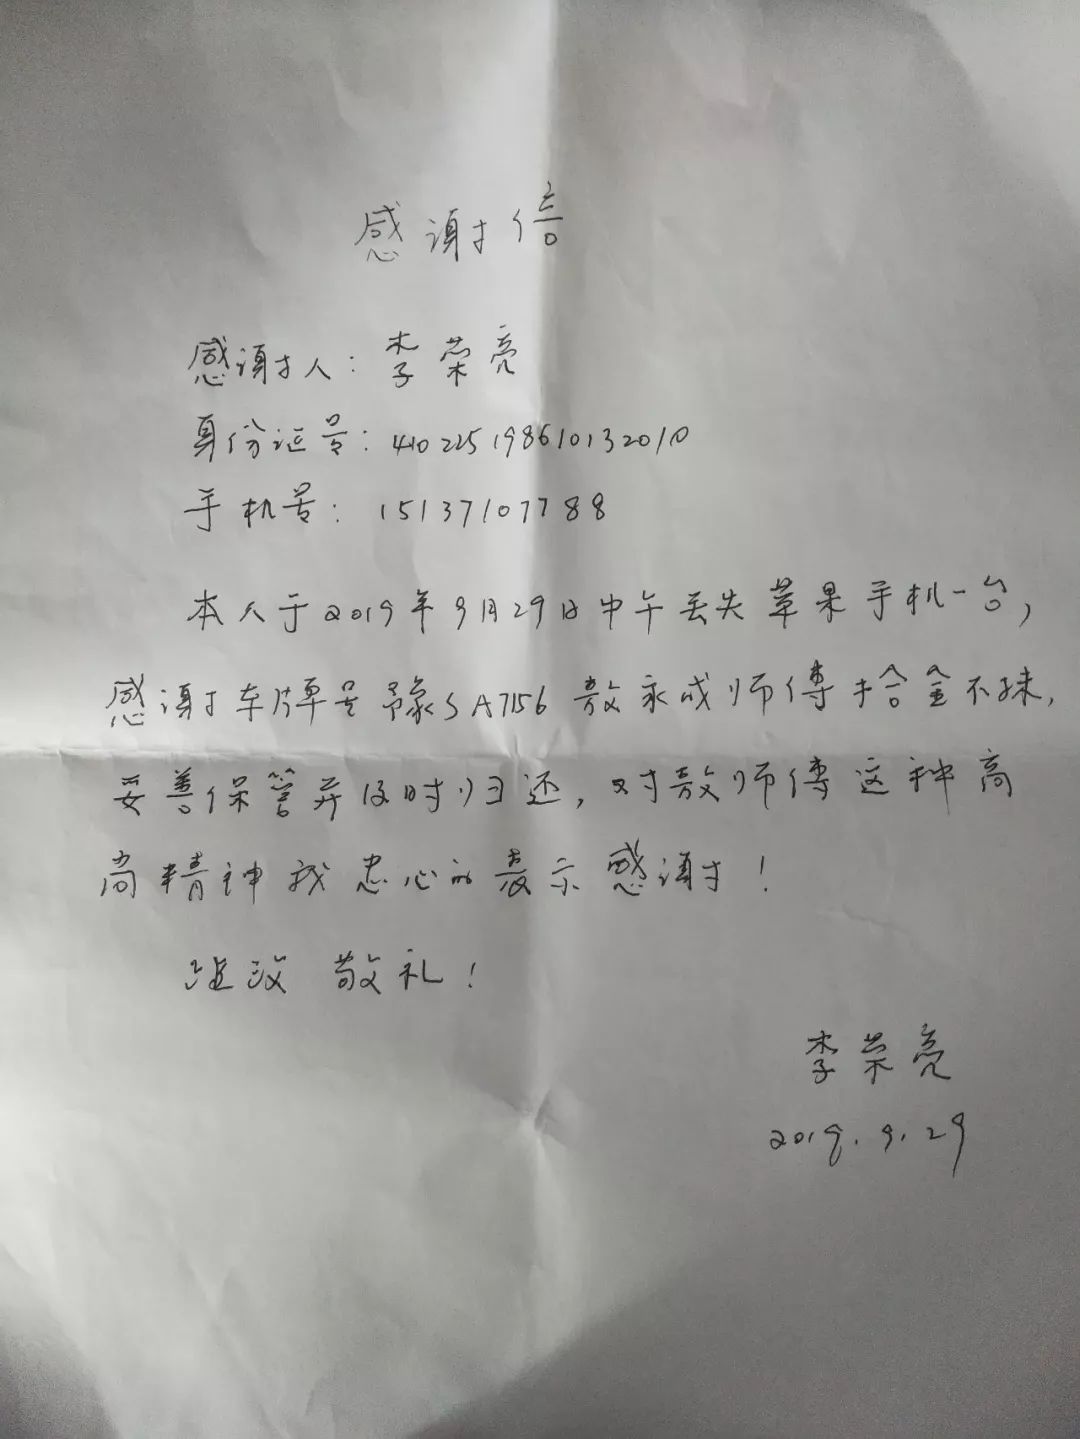 感谢信
感谢人：李荣亮
身份证号：410225198610132010
手机号：15137107788
本人于2019年9月29日中午丢失苹果手机一台，
感谢车牌号豫SA7156敖永成师傅拾金不昧，
妥善保管并及时归还，对敖师傅这种高
尚精神我忠心的表示感谢！
此致 敬礼！
李荣亮
2019.9.29